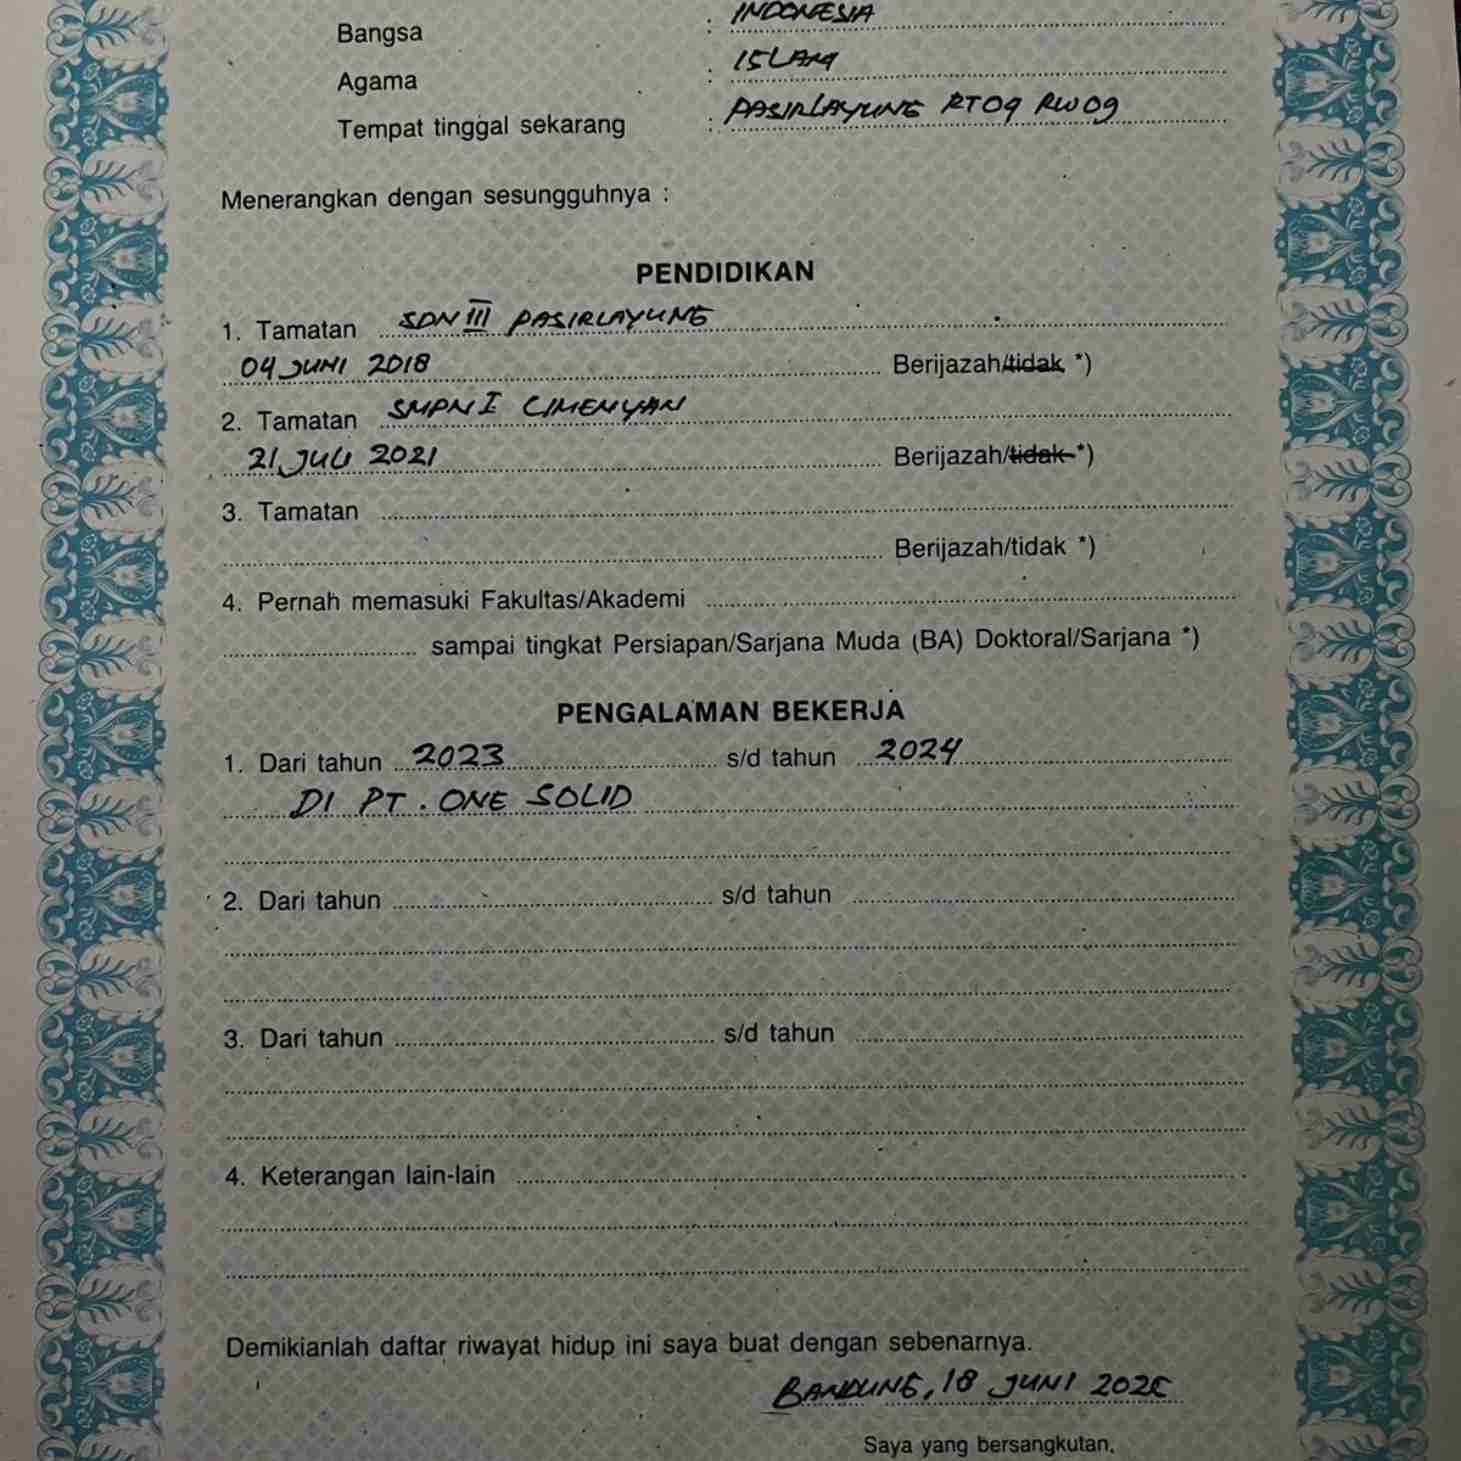 Bangsa : INDONESIA
Agama : ISLAM
Tempat tinggal sekarang : PASIRLAYUNG RT09 RW09
Menerangkan dengan sesungguhnya :
PENDIDIKAN
1. Tamatan SDN III PASIRLAYUNG
04 JUNI 2018 Berijazah/tidak *)
2. Tamatan SMPN I CIMENYAN
21 JULI 2021 Berijazah/tidak *)
3. Tamatan
Berijazah/tidak *)
4. Pernah memasuki Fakultas/Akademi
sampai tingkat Persiapan/Sarjana Muda (BA) Doktoral/Sarjana *)
PENGALAMAN BEKERJA
1. Dari tahun 2023 s/d tahun 2024
DI PT. ONE SOLID
2. Dari tahun s/d tahun
3. Dari tahun s/d tahun
4. Keterangan lain-lain
Demikianlah daftar riwayat hidup ini saya buat dengan sebenarnya.
BANDUNG, 18 JUNI 2025
Saya yang bersangkutan,